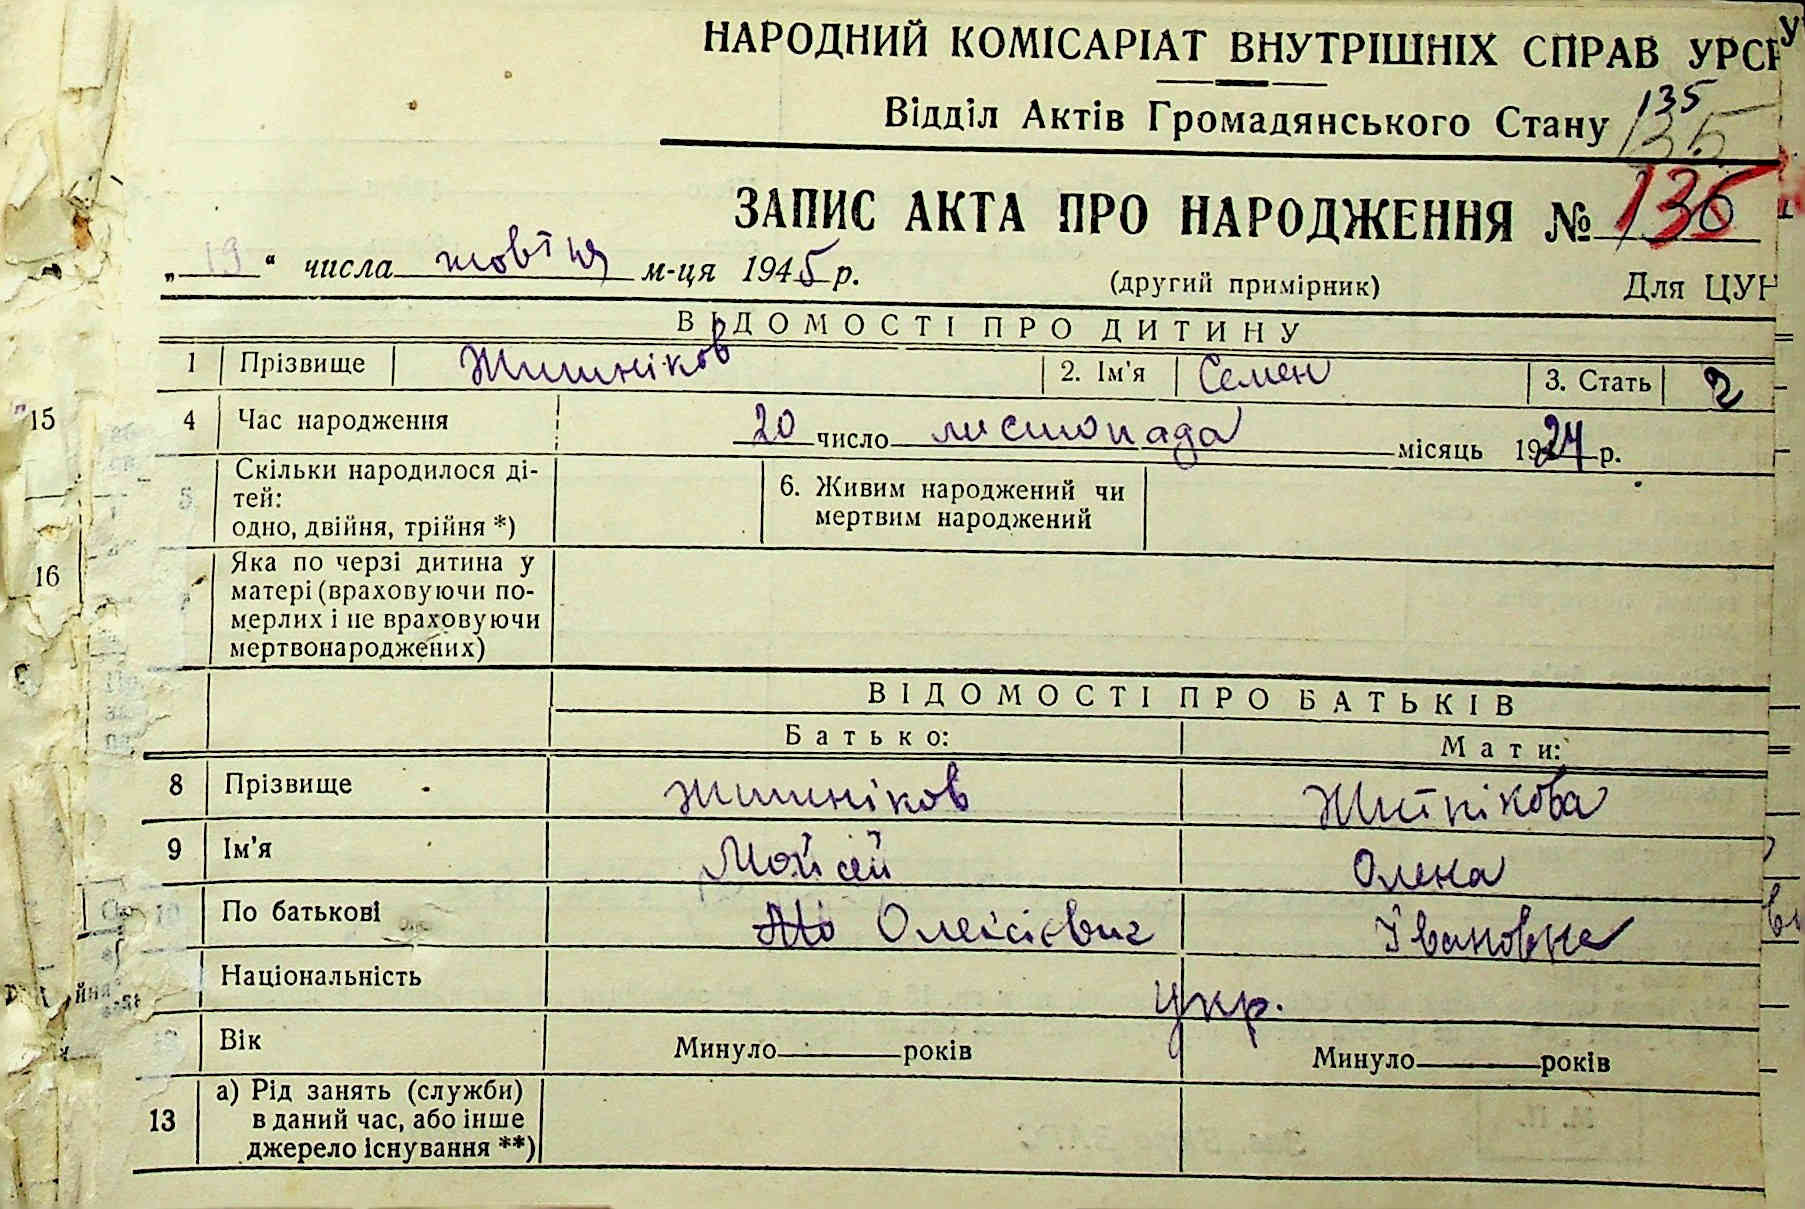 НАРОДНИЙ КОМІСАРІАТ ВНУТРІШНІХ СПРАВ УРСР
Відділ Актів Громадянського Стану 135
135
ЗАПИС АКТА ПРО НАРОДЖЕННЯ № 136
„19“ числа жовтня м-ця 1945 р. (другий примірник) Для ЦУН
ВІДОМОСТІ ПРО ДИТИНУ
1 Прізвище Житніков 2. Ім'я Семен 3. Стать ч
15 4 Час народження 20 число листопада місяць 1924 р.
5 Скільки народилося ді-
тей:
одно, двійня, трійня *) 6. Живим народжений чи
мертвим народжений
16 Яка по черзі дитина у
матері (враховуючи по-
мерлих і не враховуючи
мертвонароджених)
ВІДОМОСТІ ПРО БАТЬКІВ
Батько: Мати:
8 Прізвище Житніков Житнікова
9 Ім'я Мойсей Олена
10 По батькові Олексієвич Івановна
Національність укр.
Вік Минуло років Минуло років
13 а) Рід занять (служби)
в даний час, або інше
джерело існування **)